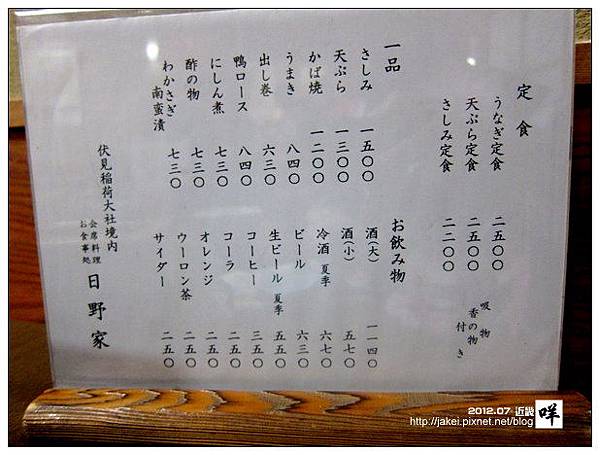 定食
うなぎ定食 二五〇〇
天ぷら定食 二五〇〇
さしみ定食 二二〇〇
吸物
香の物
付き
一品
さしみ 一五〇〇
天ぷら 一三〇〇
かば焼 一二〇〇
うまき 八四〇
出し巻 六三〇
鴨ロース 八四〇
にしん煮 七三〇
酢の物 七三〇
わかさぎ南蛮漬 七三〇
お飲み物
酒(大) 一一四〇
酒(小) 五七〇
冷酒 夏季 六七〇
ビール 六三〇
生ビール 夏季 五五〇
コーヒー 三五〇
コーラ 二五〇
オレンジ 二五〇
ウーロン茶 二五〇
サイダー 二五〇
伏見稲荷大社境内
会席料理
お食事処
日野家
2012.07 近畿 咩
http://jakei.pixnet.net/blog